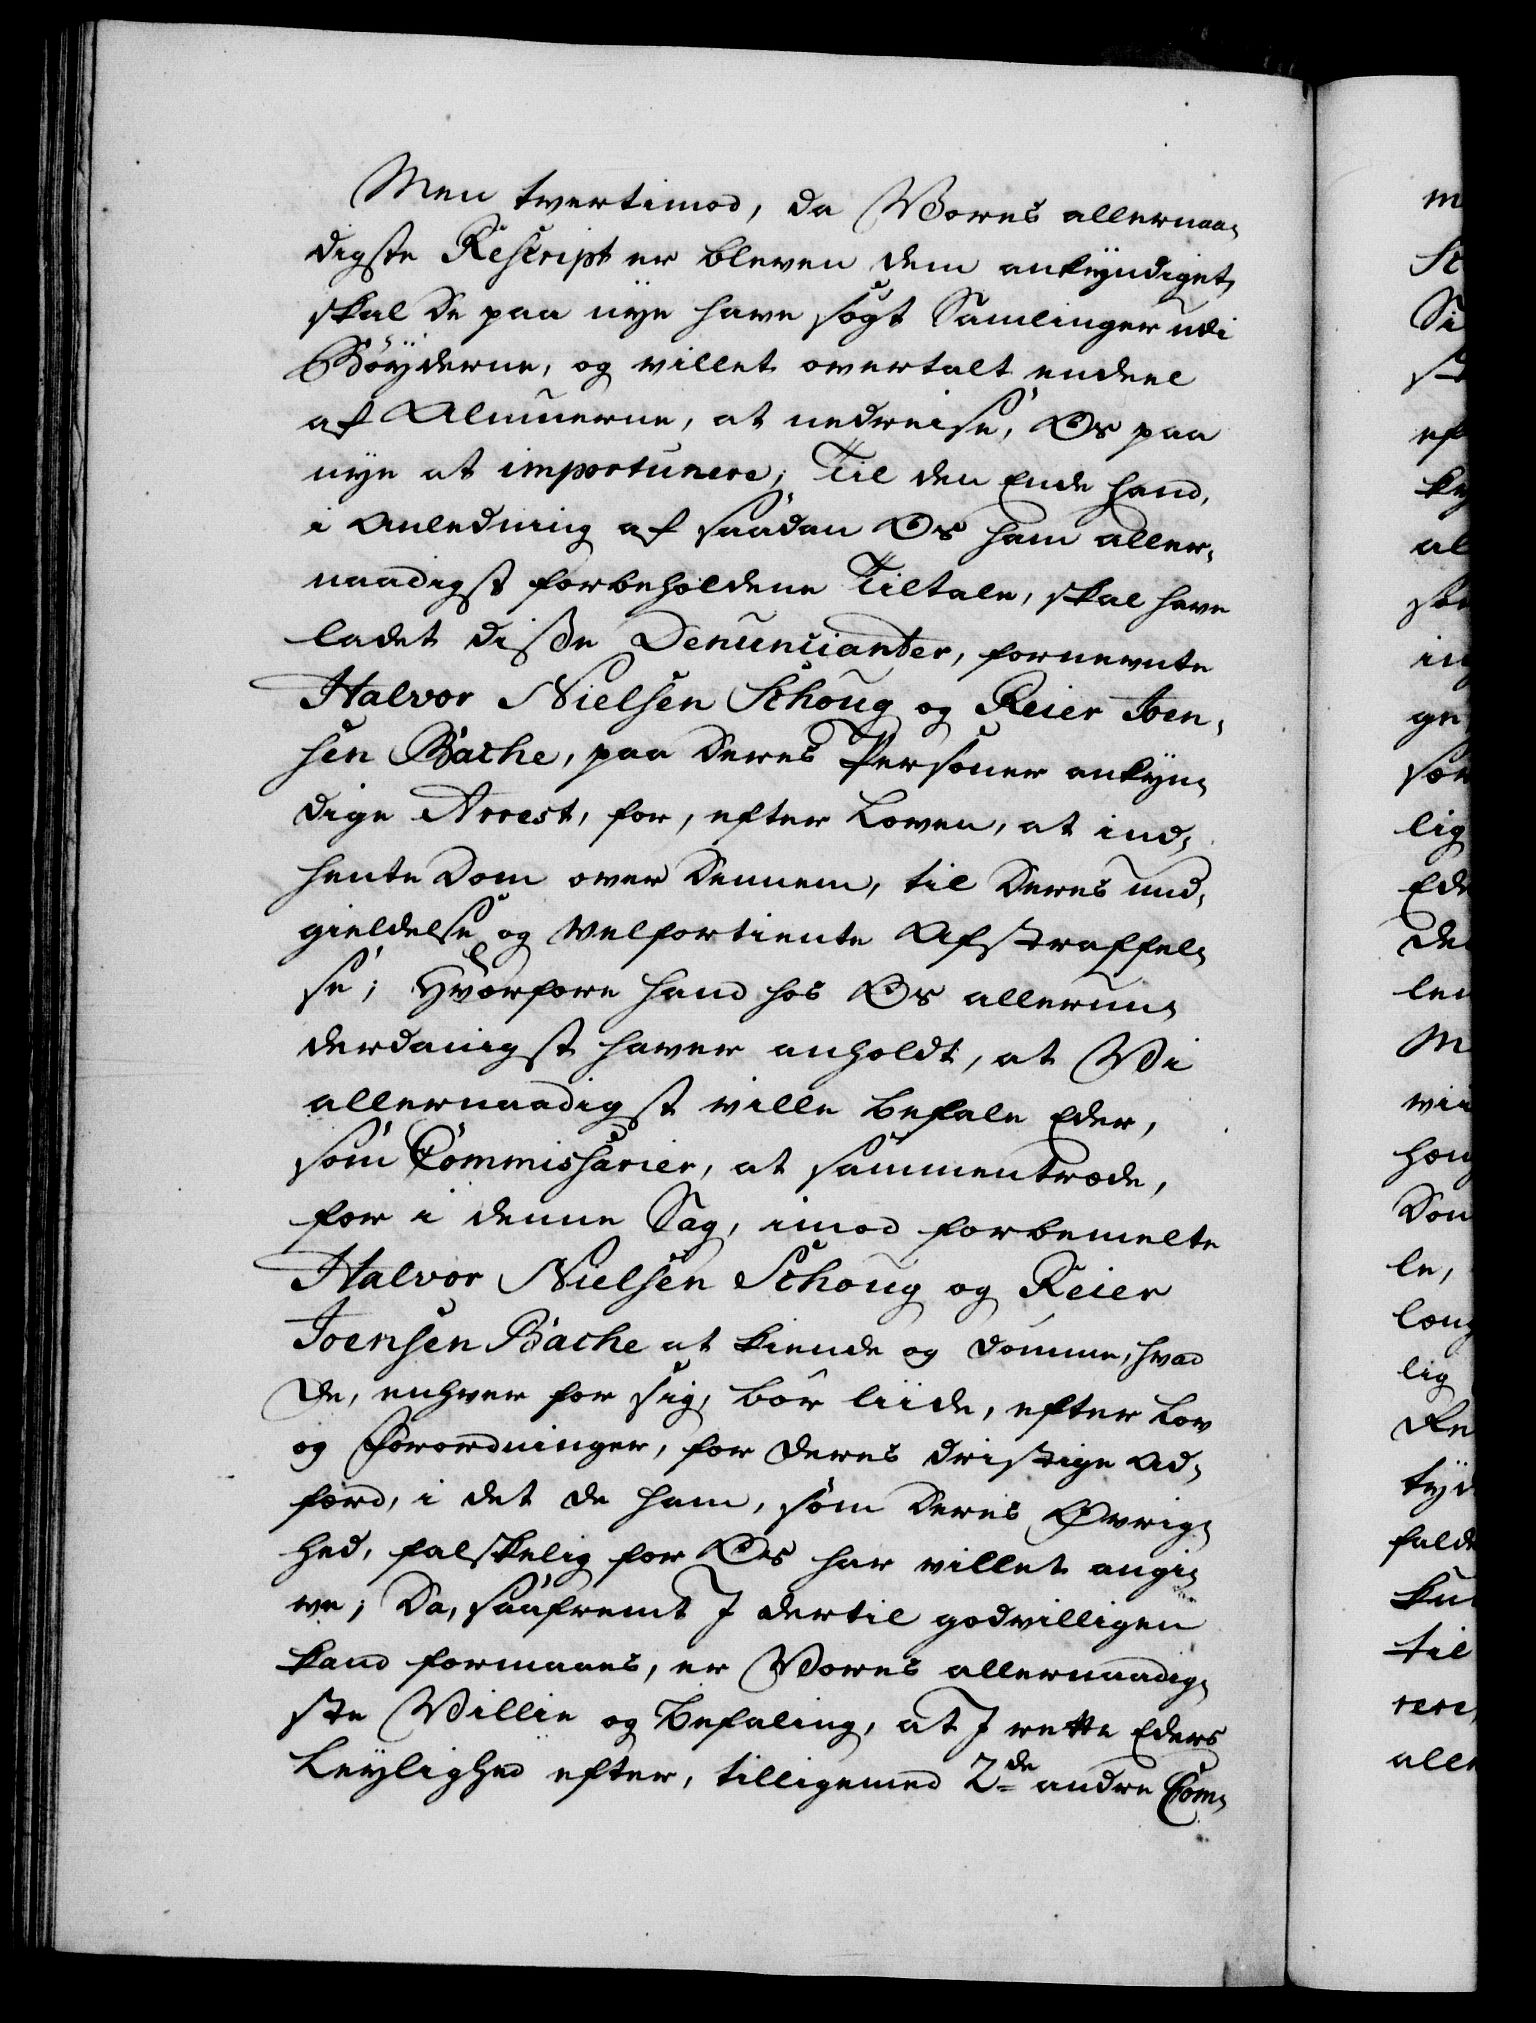 Men tvertimod, da Vores allernaa-
digste Rescript er bleven dem ankyndiget,
skal de paa nye have søgt Samlinger udi
Bøyderne, og villet overtalt endeel
af Almuerne, at nedreise, Os paa
nye at importunere; Til den Ende hand,
i Anledning af saadan Os ham aller-
naadigst forbeholdene Tiltale, skal have
ladet disse Denuncianter, fornevnte
Halvor Nielsen Schoug og Reier Joen-
sen Bache, paa deres Personer ankyn-
dige Arrest, for, efter Loven, at ind-
hente Dom over dennem, til deres und-
gieldelse og velfortiente Afstraffel-
se; Hvorfore hand hos Os allerun-
derdanigst haver anholdt, at Vi
allernaadigst ville befale Eder,
som Commissarier, at sammentræde,
for i denne Sag, imod forbemelte
Halvor Nielsen Schoug og Reier
Joensen Bache at kiende og dømme, hvad
de, enhver for sig, bør liide, efter Lov
og Forordninger, for deres dristige Ad-
færd, i det de ham, som deres Øvrig-
hed, falskelig for Os har villet angi-
ve; Da, saafremt I dertil godvilligen
kand formaaes, er Vores allernaadig-
ste Villie og Befaling, at I rette Eders
Leylighed efter, tilligemed 2de andre Com-